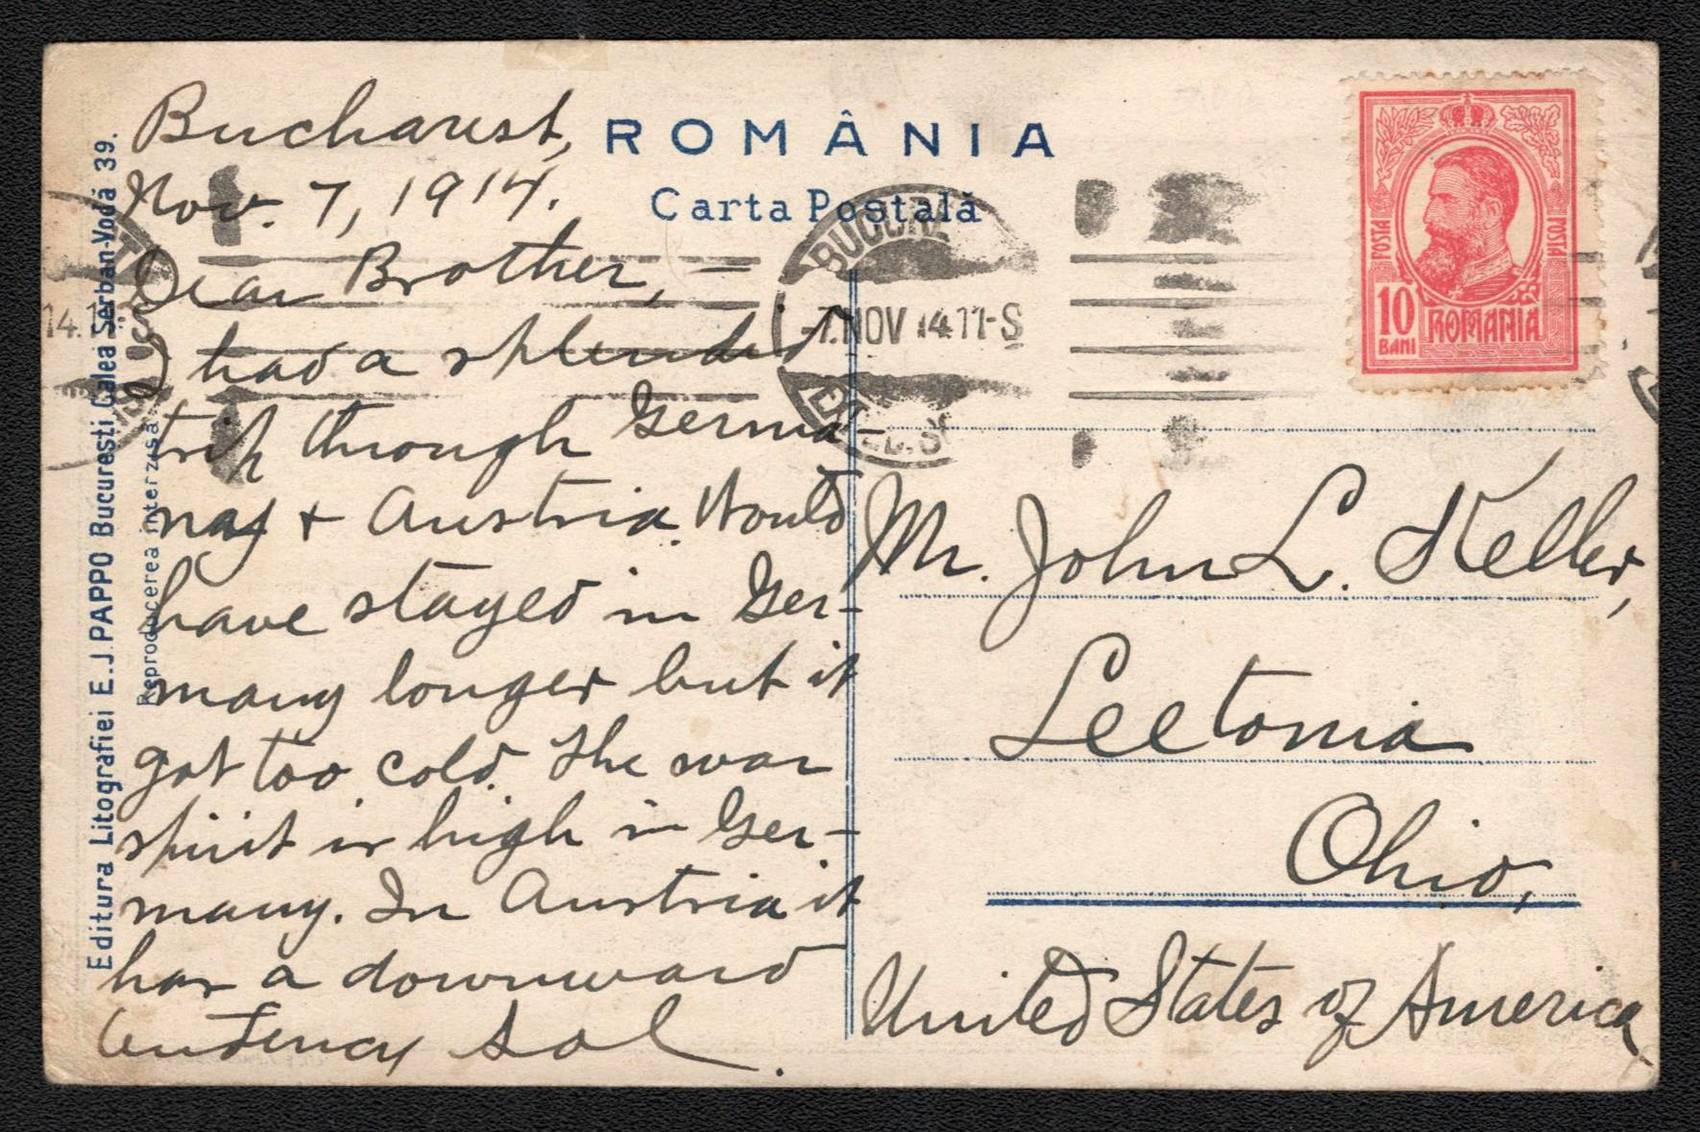 ROMÂNIA
Carta Postală
Bucharest,
Nov. 7, 1914.
Dear Brother, –
I had a splendid
trip through Germa-
nay + Austria. Would
have stayed in Ger-
many longer but it
got too cold. The war
spirit is high in Ger-
many. In Austria it
has a downward
tendency Sol.
Mr. John L. Keller,
Leetonia
Ohio,
United States of America
Editura Litografiei E.J.PAPPO Bucuresti Calea Șerban-Vodă 39.
Reproducerea interzisă
POSTA
POSTA
10
BANI
ROMANIA
-7.NOV 14.11-S